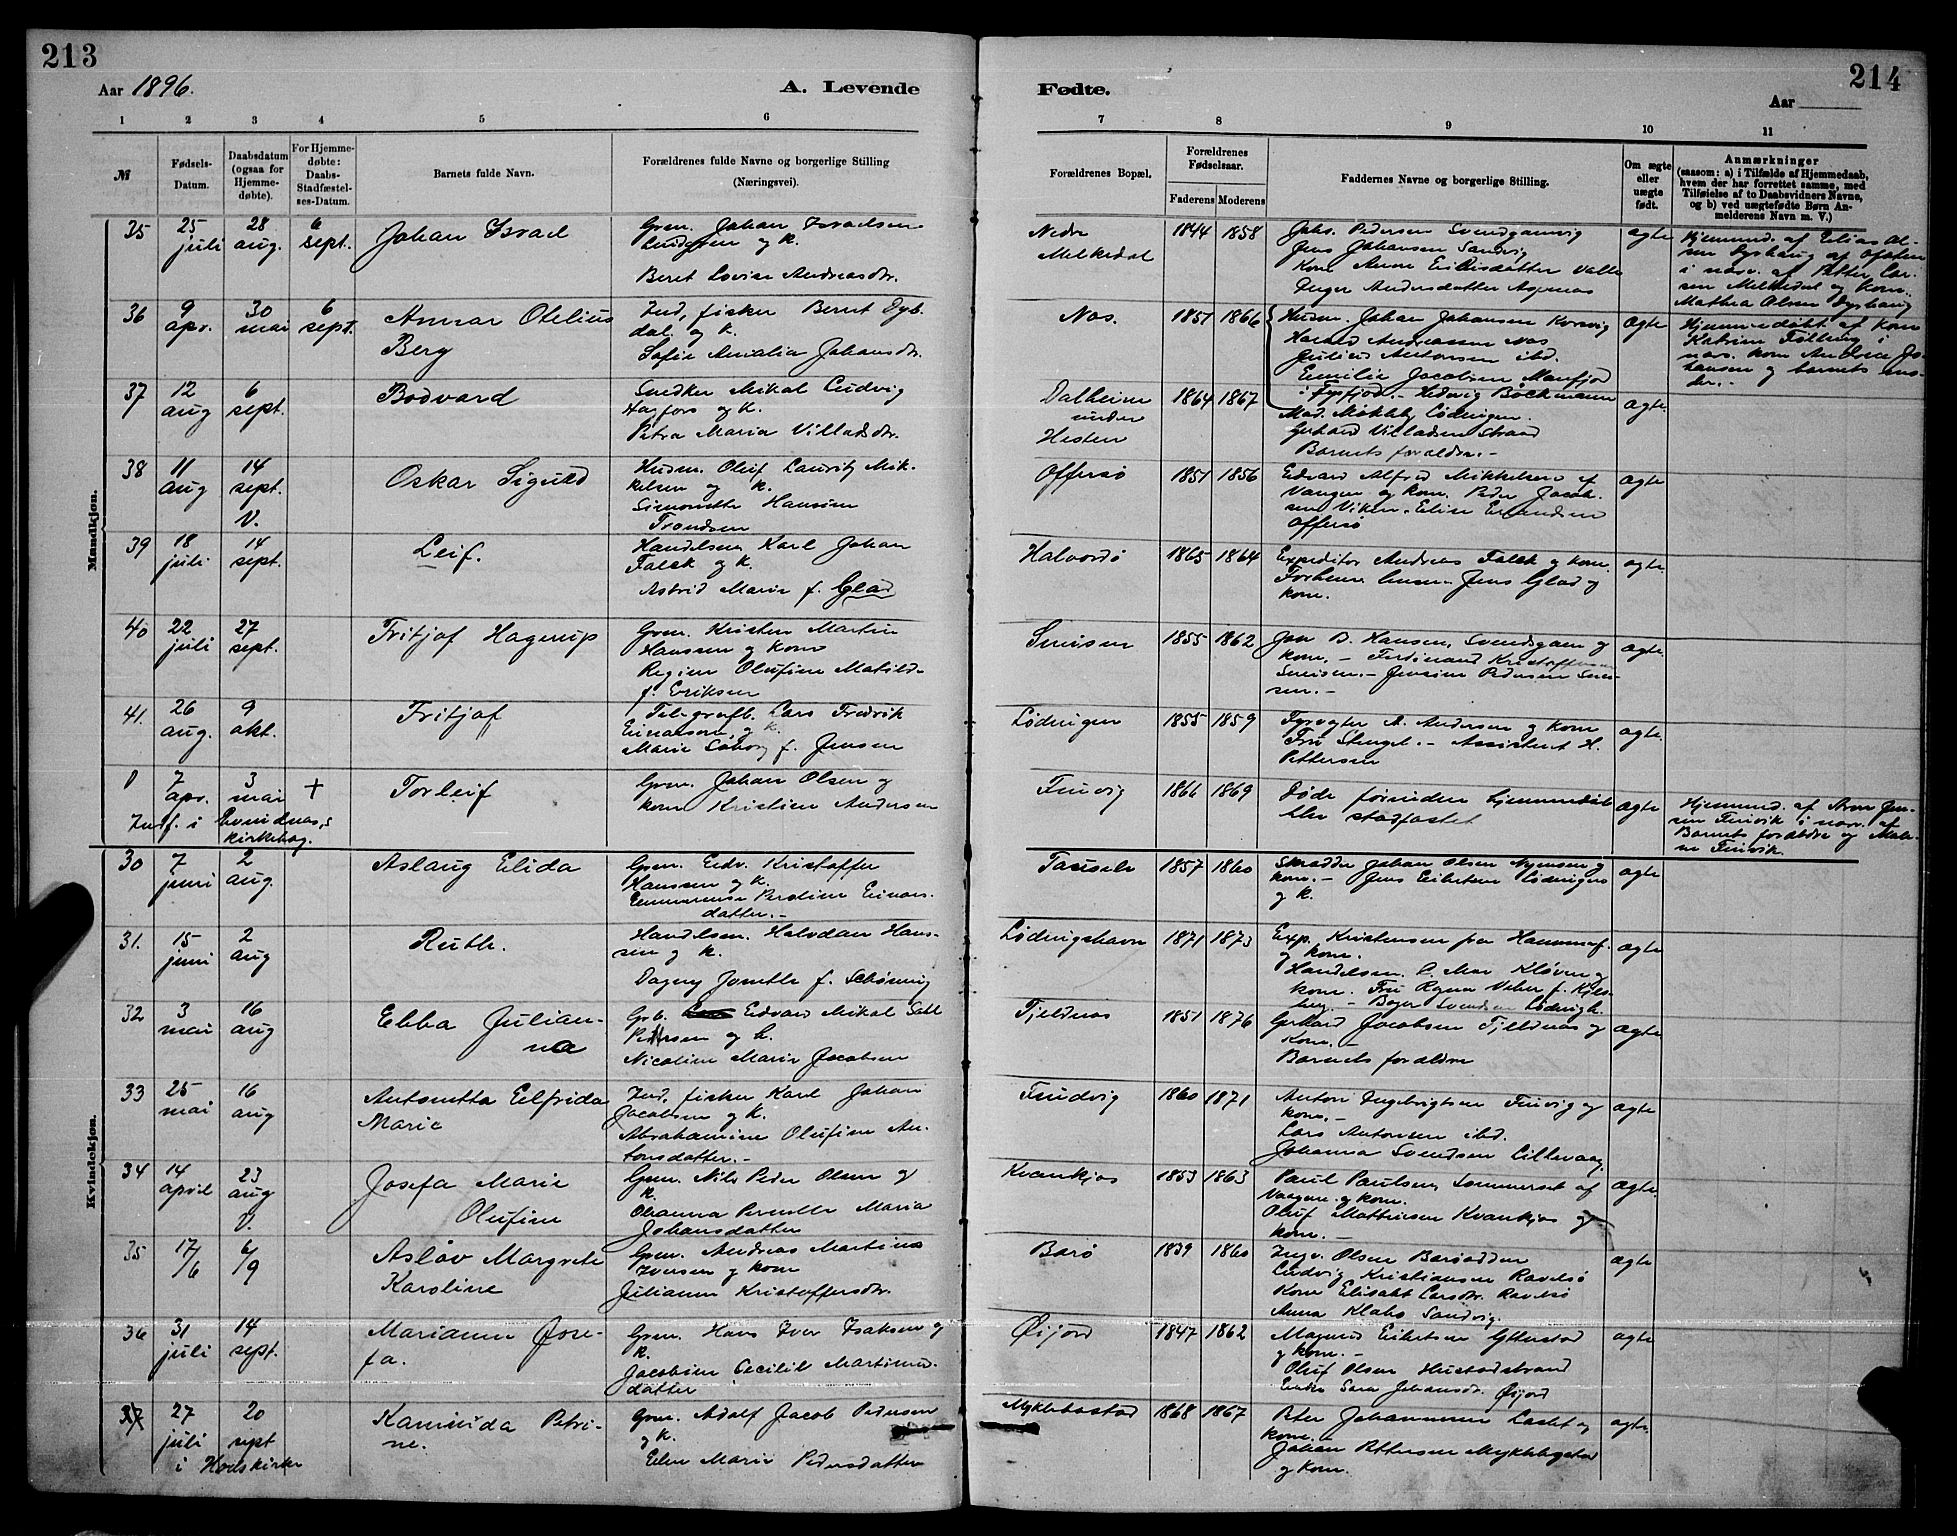 213
214
Aar 1896.
A. Levende
Fødte.
Aar
1 2 3 4 5 6
7 8 9 10 11
№
Fødsels-
Datum.
Daabsdatum
(ogsaa for
Hjemme-
døbte).
For Hjemme-
døbte:
Daabs-
Stadfæstel-
ses-Datum.
Barnets fulde Navn.
Forældrenes fulde Navne og borgerlige Stilling
(Næringsvei).
Forældrenes Bopæl.
Forældrenes
Fødselsaar.
Faderens Moderens
Faddernes Navne og borgerlige Stilling.
Om ægte
eller
uægte
født.
Anmærkninger
(saasom: a) i Tilfælde af Hjemmedaab,
hvem der har forrettet samme, med
Tilføielse af to Daabsvidners Navne,
og b) ved uægtefødte Børn An-
melderens Navn m. V.)
Mandkjøn.
35 25 juli 28 aug. 6 sept.
Johan Israel
Grm. Johan Israelsen
og k.
Beret Lovise Andreasdtr.
Nedre
Melkedal
1844 1858
Johs. Pedersen
Jens Johansen Sandvig
Kone Anne
Inger Andersdatter
ægte
Hjemmed. af Elias Ol-
sen af Ofoten
i nærv. af Petter Lar-
sen Melkedal og kone
Mathea Olsen
36 9 apr. 30 mai 6 sept.
Annar Otelius
Berg
Ind, fisker Bernt Dyb-
dal og k.
Sofie Amalia Johansdtr.
Nes.
1851 1866
Husm. Johan Johansen
Andreassen Nes
Julius Antonsen ibd.
Emilie Jacobsen
ægte
Hjemmedøbt af kone
Katrine i
nærv. kone Andrea Jo-
hansen og barnets mo-
der.-
37 12 aug 6 sept.
Bodvard
Snedker Mikal Ludvig
Hagfors og k.
Petra Maria Villadsdtr.
Dalheim
under
Hesten
1864 1867
- Hedvig Bøckmann
Mad. Lødingen.
Gerhard Villadsen Strand
Barnets forældre.-
ægte
38 11 aug 14 sept. V.
Oskar Sigurd
Husm. Oluf Lauritz Mik-
kelsen og k.
Simonette Hansine
Trondsen
Offersø
1851 1856
Edvard Alfred Mikkelsen af
Vaagen og kone. Peder Jacob-
sen Viken. Elise
Offersø
ægte
39 18 juli 14 sept.
Leif.
Handelsm. Karl Johan
Falck og k.
Astrid Marie f. Glad
Halvardø
1865 1864
Expeditør Andreas Falck og kone.
Jens Glad og
kone.
ægte.
40 22 juli 27 sept.
Fritjof Hagerup
Grm. Kristen Martin
Hanssen og kone
Regine Olufine Matilde
f. Eriksen
1855 1862
B. Hansen, og
kone. - Ferdinand Kristoffersen
Jensine Pedersen
ægte.
41. 26 aug. 9 okt.
Fritjof
Telegrafb. Lars Fredrik
Einarsen og k.
Marie f. Jensen
Lødingen
1855 1859
Fyrvogter A. Andersen og kone
Fru Stengel. - Assistent H.
Pettersen
ægte.
0 7 apr. 3 mai +
Indf. i Evindnæs
kirkebog.
Torleif
Grm. Johan Olsen og
kone Kristine Andersen
Finvig
1866 1869
Døde forinden hjemmedaab
blev stadfæstet
ægte
Hjemmed. af Arne Jen-
sen Finvik i nærv. af
Barnets forældre og
Finvik.
Kvindekjøn.
30 7 juni 2 aug.
Aslaug Elida
Grm. Edv. Kristoffer
Hanssen og k.
Pertine Einars-
datter.-
1857 1860
Skrædder Johan Olsen og
kone. - Jens Lødingen
og k.
ægte
31. 15 juni 2 aug
Ruth.
Handelsm. Halvdan Hans-
sen og k.
Dagny f. Schøning
Lødingshavn
1871 1873
Exp. Kristensen fra Hammerf.
og kone.
Handelsm.
kone. Fru
ægte
32 3 mai 16 aug
Ebba Julian-
na
Grb. Edvard Mikal
Pettersen og k.
Nicoline Marie Jacobsen
Tjeldnæs
1851 1876
Gerhard Jacobsen Tjeldnæs og
Kone.-
Barnets forældre
ægte
33 25 mai 16 aug
Antonetta Elfrida
Marie
Ind, fisker Karl Johan
Jacobsen og k.
Abrahamine Olufine An-
tonsdatter.-
1860 1871
Anton Ingebrigtsen Finvig og
kone.-
Lars Antonsen ibd.
Johanna Svendsen Littevaag
ægte
34 14 april 23 aug V.
Josefa Marie
Olufine
Grm. Nils Peder Olsen og
k.
Johanna Pernille Maria
Johansdatter
Kvankjos
1853 1863
Paul Paulsen, Sommerset af
Vaagen og kone.
Oluf Mathisen Kvankjos og
kone.-
ægte.
35 17/6 6/9
Asløv Margrete
Karoline
Grm. Andreas Martinus
Iversen og kone
Julianne Kristoffersdtr.
Barø
1839 1860
Ingv. Olsen Barøodden
Ludvig Kristiansen
Kone Elisabt Larsdtr.
Anna Sandvig.
ægte
36 31 juli 14 sept.
Marianne Jose-
fa.
Grm. Hans Iver Isaksen og
k.
Jacobine Cecilie Martinus-
datter
Øijord
1847 1862
Magnus Ytterstad
og kone.-
Oluf Olsen Hustadstrand
Enke Sara Johansdtr. Øijord
ægte
37 27 juli 20 sept
i Hols kirke
Kaminda Petri-
ne.
Grm. Adolf Jacob Pedersen
og k.
Elen Marie Pedersdatter
Myklebostad
1868 1867
Peter Johannesen og
kone.-
Johan Pettersen Myklebostad
og kone.
ægte